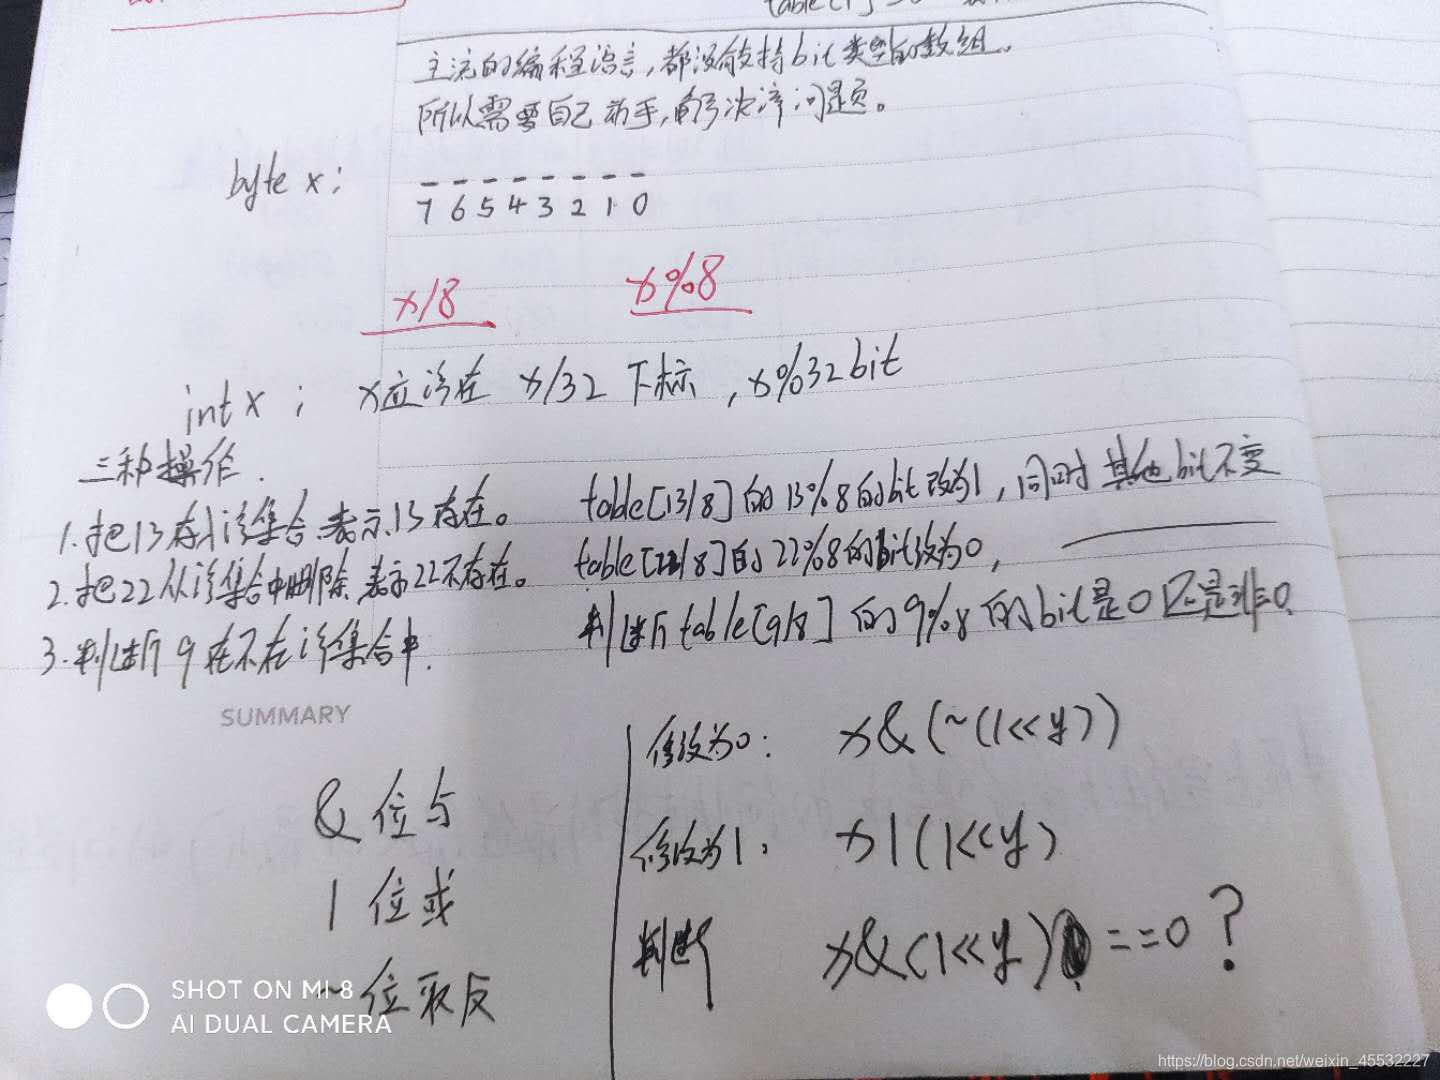 主流的编程语言，都没有支持bit类型的数组。
所以需要自己动手，解决这问题。
byte x；
7 6 5 4 3 2 1 0
x/8 x%8
int x； x应该在 x/32 下标，x%32bit
三种操作.
1.把13存入该集合 表示13存在。 table[13/8]的13%8的bit改为1，同时其他bit不变
2.把22从该集合中删除 表示22不存在。 table[22/8]的22%8的bit改为0，
3.判断9在不在该集合中. 判断table[9/8]的9%8的bit是0还是非0.
SUMMARY
& 位与
| 位或
~ 位取反
修改为0： x&(~(1<<y))
修改为1： x|(1<<y)
判断 x&(1<<y) ==0？
SHOT ON MI 8
AI DUAL CAMERA
https://blog.csdn.net/weixin_45532227